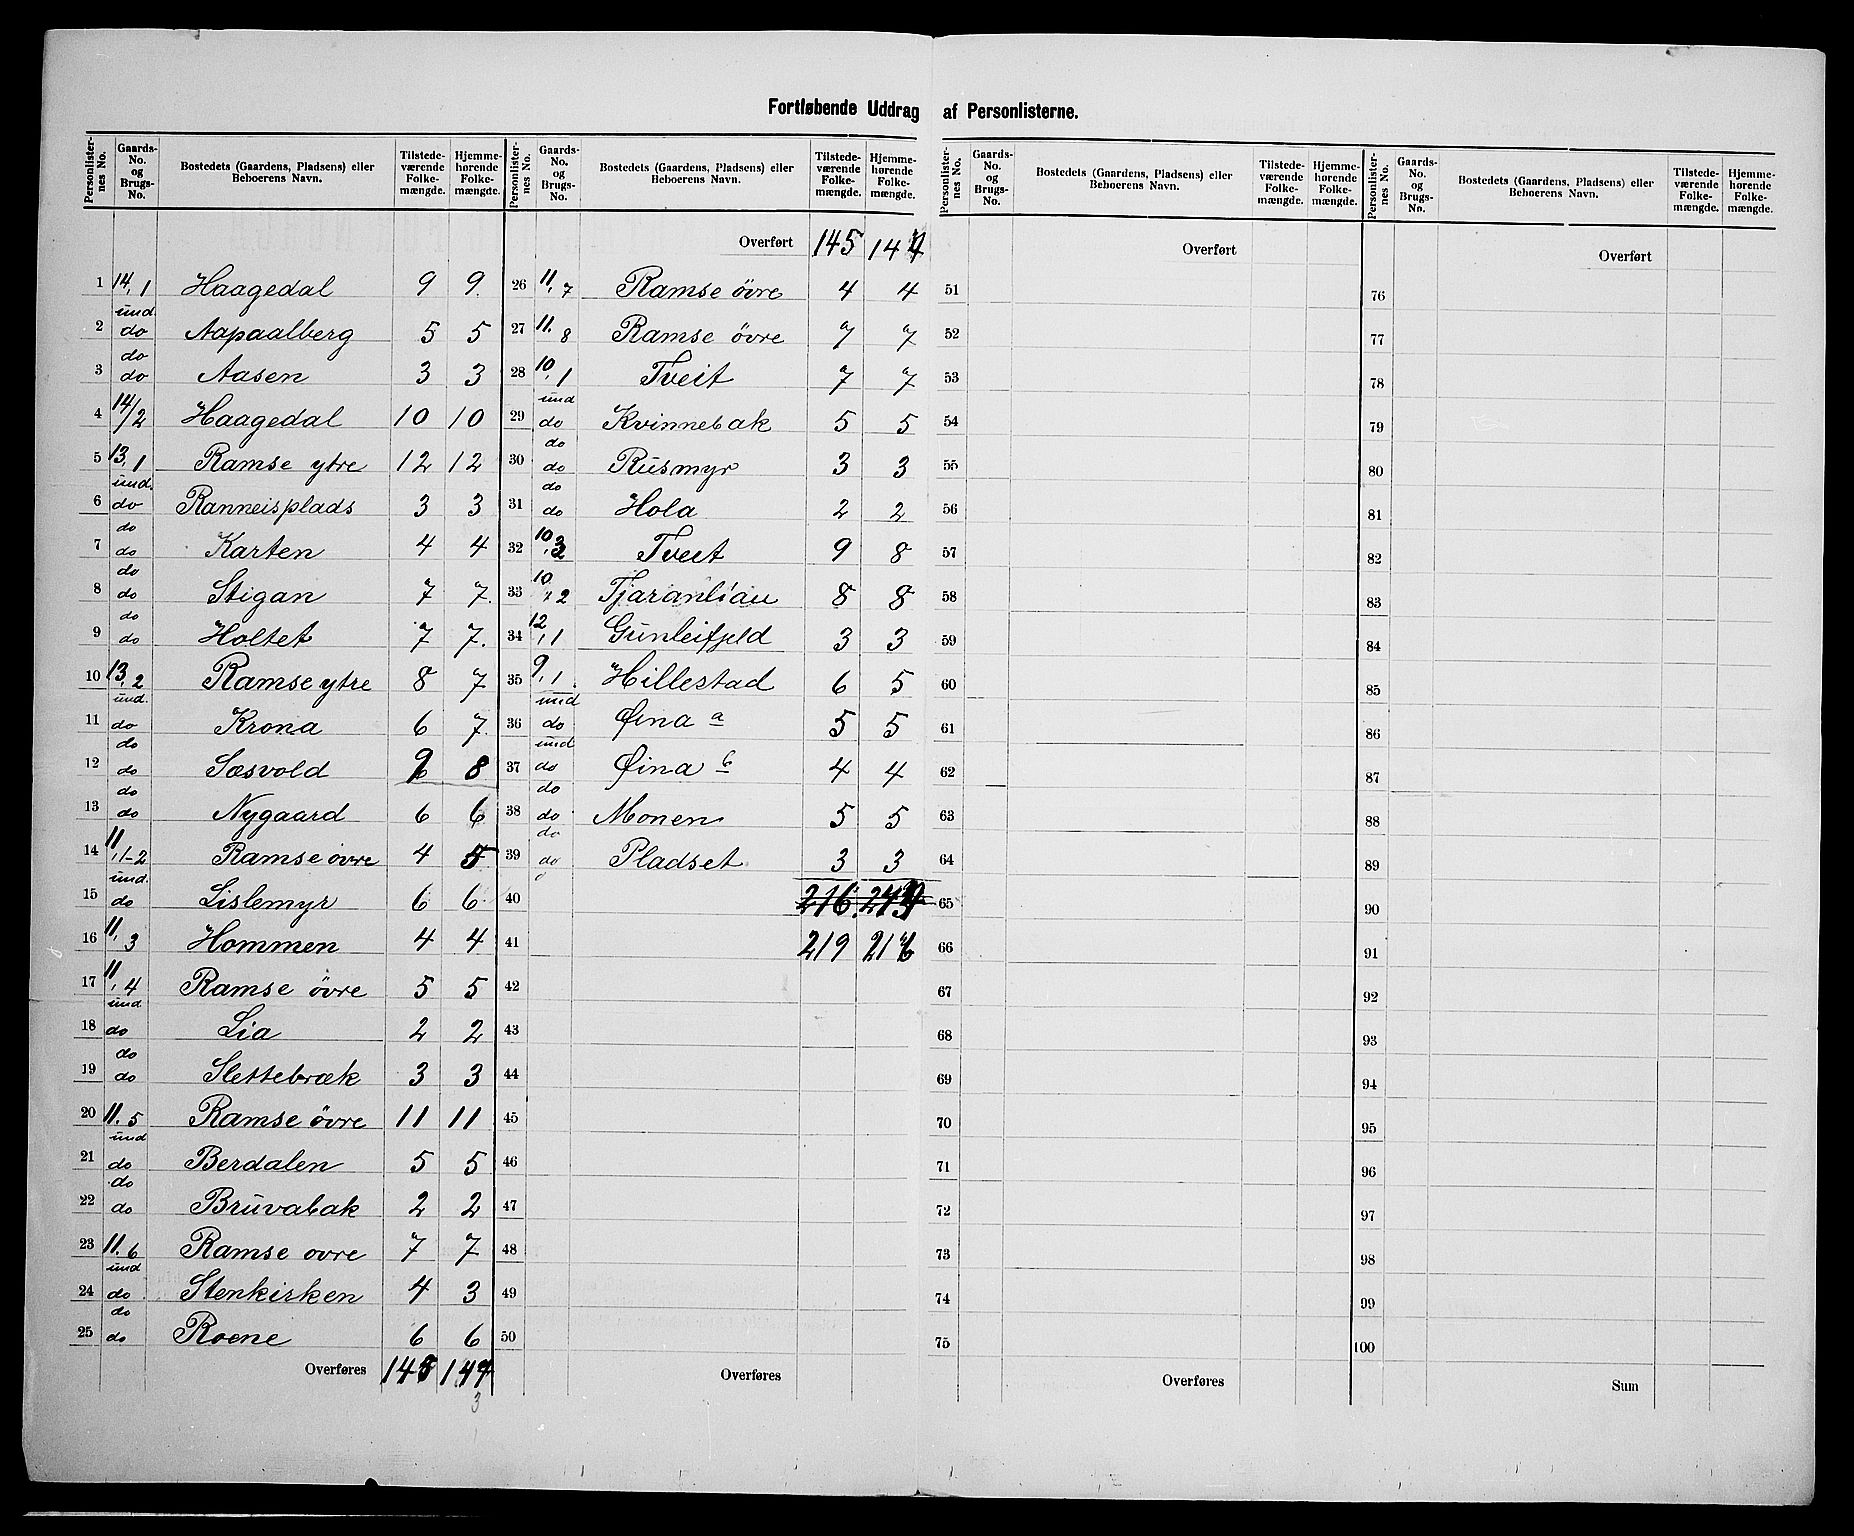 Fortløbende Uddrag af Personlisterne.
Personlisternes No. Gaards-No. og Brugs-No. Bostedets (Gaardens, Pladsens) eller Beboerens Navn. Tilstedeværende Folkemængde. Hjemmehørende Folkemængde.
1 14,1 Haagedal 9 9
2 und. do Aapaalberg 5 5
3 do do Aasen 3 3
4 14/2 Haagedal 10 10
5 13,1 Ramse ytre 12 12
6 und. do Ranneisplads 3 3
7 do do Karten 4 4
8 do do Stigan 7 7
9 do do Holtet 7 7
10 13,2 Ramse ytre 8 7
11 und. do Krona 6 7
12 do do Sæsvold 8
13 do do Nygaard 6 6
14 11,1-2 Ramse øvre 4 5
15 und. do Lislemyr 6 6
16 11,3 Hommen 4 4
17 11,4 Ramse övre 5 5
18 und do Lia 2 2
19 do do Slettebræk 3 3
20 11.5 Ramse övre 11 11
21 und do Berdalen 5 5
22 do do Bruvabak 2 2
23 11.6 Ramse ovre 7 7
24 und do Stenkirken 4 3
25 do do Roene 6 6
Overføres 145 144
3
Personlisternes No. Gaards-No. og Brugs-No. Bostedets (Gaardens, Pladsens) eller Beboerens Navn. Tilstedeværende Folkemængde. Hjemmehørende Folkemængde.
Overført 145 144
26 11,7 Ramse övre 4 4
27 11.8 Ramse övre 7 7
28 10,1 Tveit 7 7
29 und do Kvinnebak 5 5
30 do do Rusmyr 3 3
31 do do Hola 2 2
32 10,3 Tveit 9 8
33 10,2 Tjaranliau 8 8
34 12,1 Gunleifjeld 3 3
35 9,1 Hillestad 6 5
36 und do Øina a 5 5
37 und do Øina b 4 4
38 do do Monen 5 5
39 do do Pladset 3 3
40 216
41 219 216
42
43
44
45
46
47
48
49
50
Overføres
Personlisternes No. Gaards-No. og Brugs-No. Bostedets (Gaardens, Pladsens) eller Beboerens Navn. Tilstedeværende Folkemængde. Hjemmehørende Folkemængde.
Overført
51
52
53
54
55
56
57
58
59
60
61
62
63
64
65
66
67
68
69
70
71
72
73
74
75
Overføres
Personlisternes No. Gaards-No. og Brugs-No. Bostedets (Gaardens, Pladsens) eller Beboerens Navn. Tilstedeværende Folkemængde. Hjemmehørende Folkemængde.
Overført
76
77
78
79
80
81
82
83
84
85
86
87
88
89
90
91
92
93
94
95
96
97
98
99
100
Sum